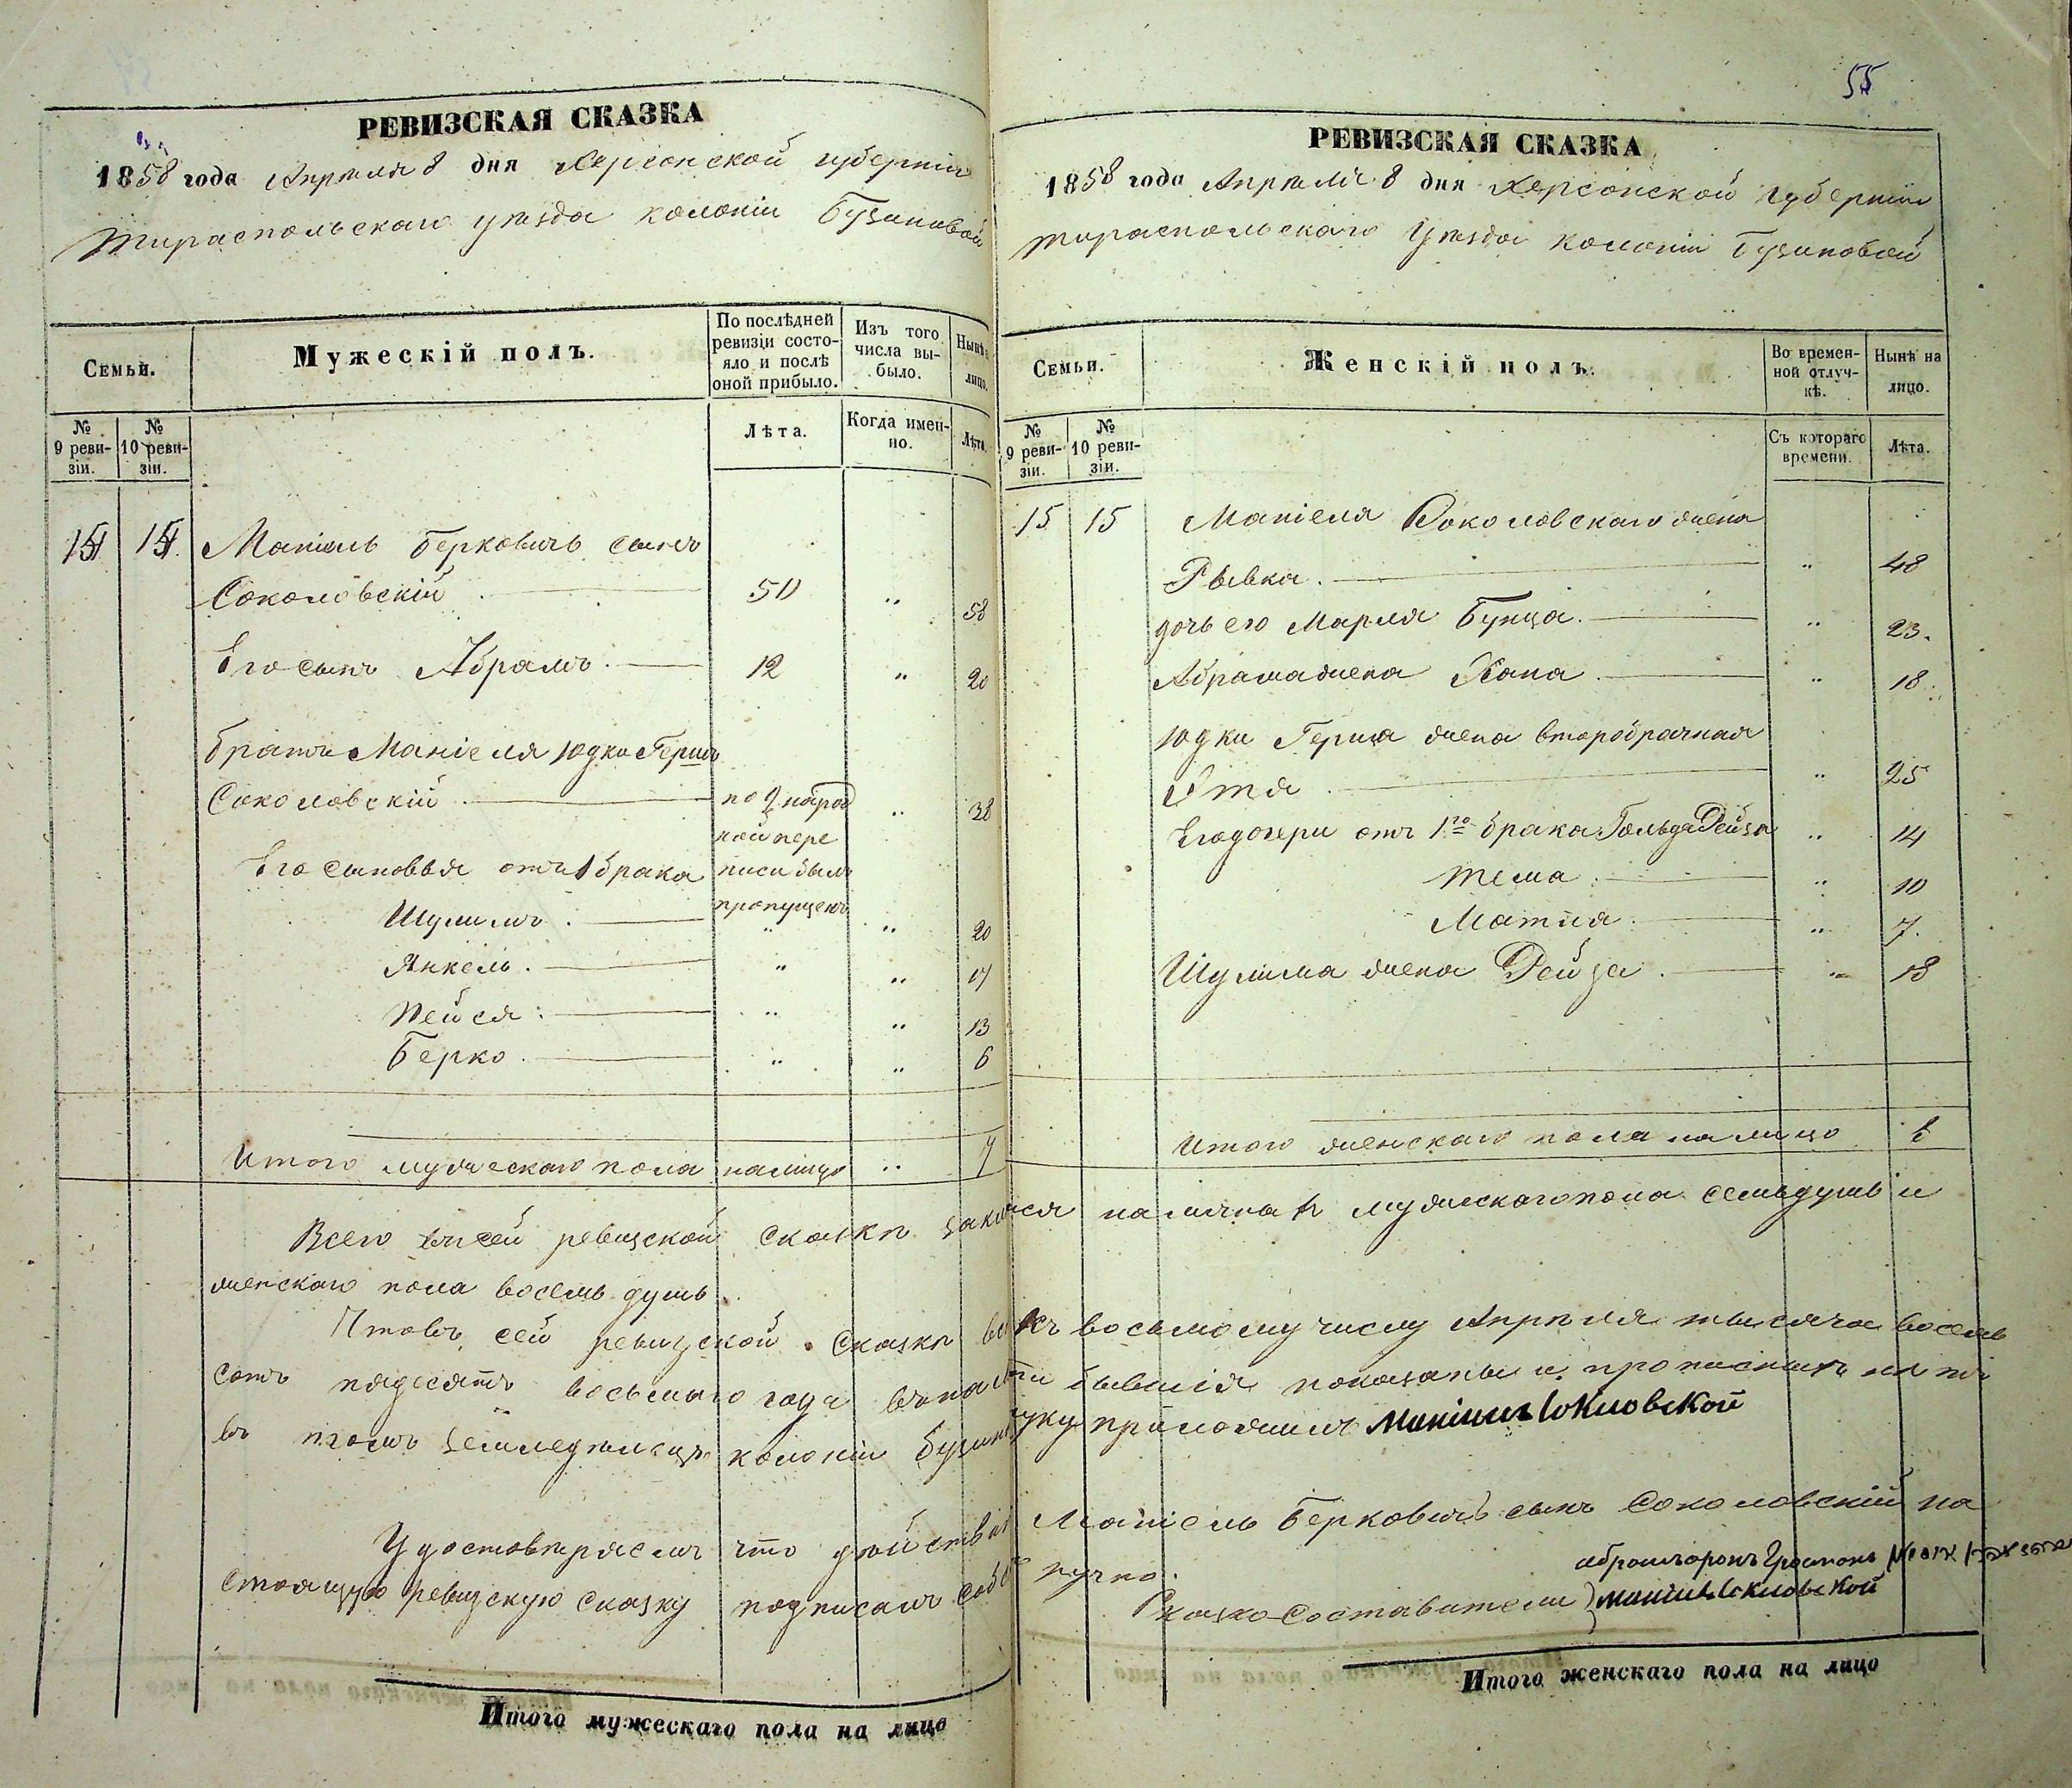 РЕВИЗСКАЯ СКАЗКА
1858 года Апрѣля 8 дня Херсонской губерніи
Тираспольскаго уѣзда колоніи Бузиновой
Семьи.
Мужескій полъ.
По послѣдней ревизіи состояло и послѣ оной прибыло.
Изъ того числа выбыло.
Нынѣ лицо.
№ 9 ревизіи.
№ 10 ревизіи.
Лѣта.
Когда именно.
Лѣта.
15 15 Маніель Берковичъ сынъ
Соколовскій 50 „ 58
Его сынъ Абрамъ 12 „ 20
братъ Маніеля Юдко Гершъ
Соколовскій по 9 народ „ 38
ной пере
Его сыновья отъ 1 брака писи былъ
пропущенъ
Шулимъ „ „ 20
Янкель „ „ 17
Пейся „ „ 13
Берко „ „ 6
Итого мужескаго пола налицо „ 7
55
РЕВИЗСКАЯ СКАЗКА
1858 года Апрѣля 8 дня Херсонской губерніи
Тираспольскаго Уѣзда колоніи Бузиновой
Семьи.
Женскій полъ.
Во временной отлучкѣ.
Нынѣ на лицо.
№ 9 ревизіи.
№ 10 ревизіи.
Съ котораго времени.
Лѣта.
15 15 Маніеля Соколовскаго жена
Рывка „ 48
дочь его Маріля Бунца „ 23.
Абрама жена Хана „ 18
Юдки Герша жена второбрачная
Этя „ 25
Его дочери отъ 1го брака Гольда Рейза „ 14
Тема „ 10
Матля „ 7.
Шулима жена Рейза „ 18
Итого женскаго пола на лицо 8
Всего въ сей ревизской сказкѣ налично мужескаго пола семь душъ и
женскаго пола восемь душъ.
сей ревизской сказкѣ къ восьмому числу Апрѣля тысяча восемь
сотъ пядесятъ восьмаго года бывшія показаны и
въ чемъ земледѣлецъ колоніи руку приложилъ
Удостовѣряемъ что Маніель Берковичъ сынъ Соколовскій на
стоящую ревизскую сказку подписалъ
Сказко-Составители
Итого мужескаго пола на лицо
Итого женскаго пола на лицо